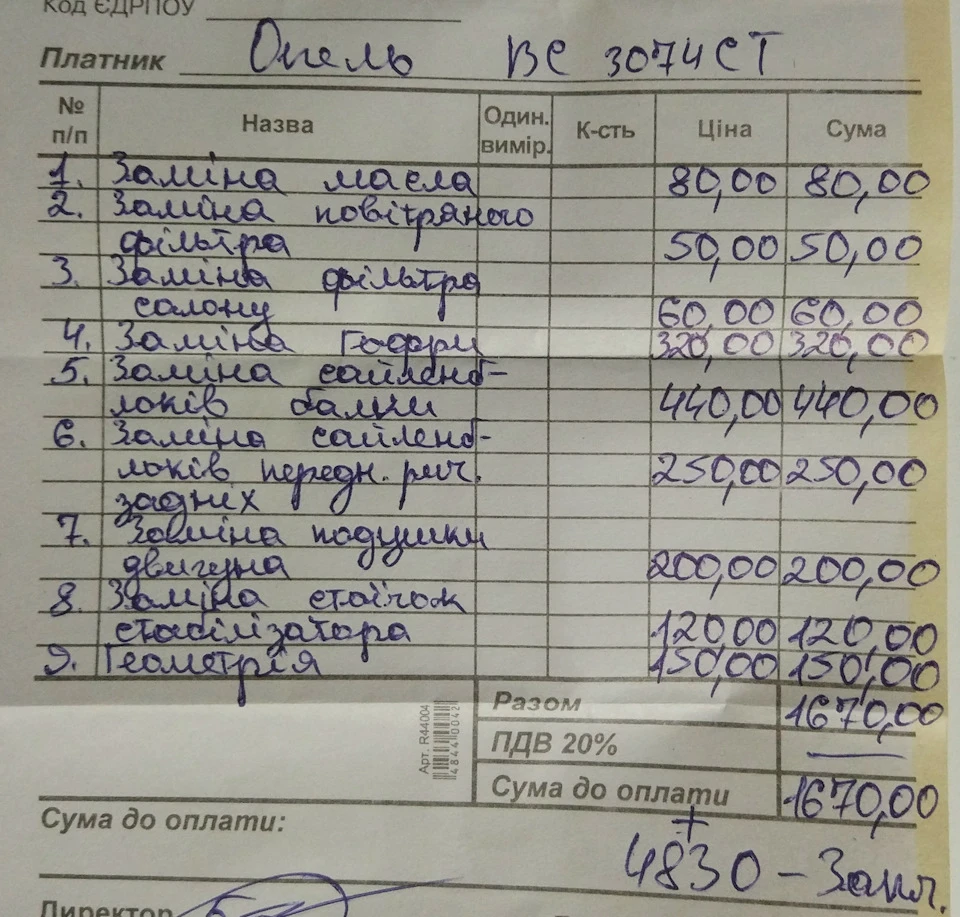 Код ЄДРПОУ
Платник Опель ВС 3074СТ
№ п/п Назва Один. вимір. К-сть Ціна Сума
1. Заміна масла 80,00 80,00
2. Заміна повітряного
фільтра 50,00 50,00
3. Заміна фільтра
салону 60,00 60,00
4. Заміна гофри 320,00 320,00
5. Заміна сайленб-
локів балки 440,00 440,00
6. Заміна сайленб-
локів передн. рич. 250,00 250,00
задніх
7. Заміна подушки
двигуна 200,00 200,00
8. Заміна стоїчок
стабілізатора 120,00 120,00
9. Геометрія 150,00 150,00
Разом 1670,00
ПДВ 20% —
Сума до оплати 1670,00
Арт. R44004
48440042
Сума до оплати:
+
4830 – Запч.
Директор